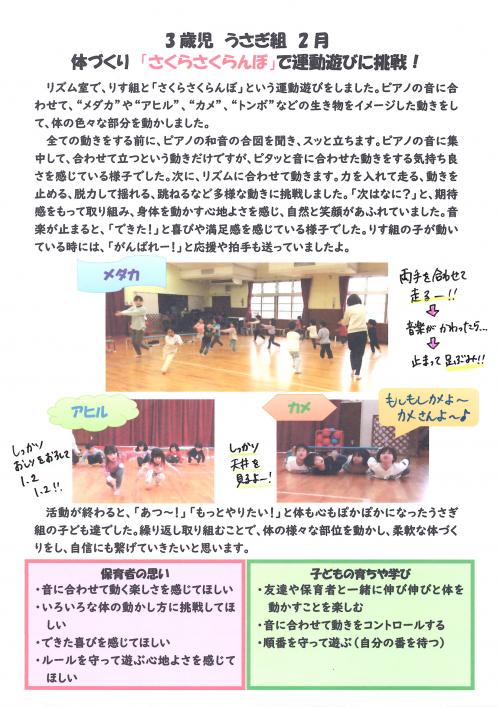 3歳児 うさぎ組 2月
体づくり 「さくらさくらんぼ」で運動遊びに挑戦！
リズム室で、りす組と「さくらさくらんぼ」という運動遊びをしました。ピアノの音に合
わせて、“メダカ”や“アヒル”、“カメ”、“トンボ”などの生き物をイメージした動きをし
て、体の色々な部分を動かしました。
全ての動きをする前に、ピアノの和音の合図を聞き、スッと立ちます。ピアノの音に集
中して、合わせて立つという動きだけですが、ピタッと音に合わせた動きをする気持ち良
さを感じている様子でした。次に、リズムに合わせて動きます。力を入れて走る、動きを
止める、脱力して揺れる、跳ねるなど多様な動きに挑戦しました。「次はなに？」と、期待
感をもって取り組み、身体を動かす心地よさを感じ、自然と笑顔があふれていました。音
楽が止まると、「できた！」と喜びや満足感を感じている様子でした。りす組の子が動い
ている時には、「がんばれー！」と応援や拍手も送っていましたよ。
メダカ
両手を合わせて
走るー!!
音楽が かわったら…
止まって 足ぶみ!!
アヒル
しっかり
おしりをおろして
1.2
1.2!!
カメ
しっかり
天井を
見るよー!
もしもしカメよ〜
カメさんよ〜♪
活動が終わると、「あつ〜！」「もっとやりたい！」と体も心もぽかぽかになったうさぎ
組の子ども達でした。繰り返し取り組むことで、体の様々な部位を動かし、柔軟な体づく
りをし、自信にも繋げていきたいと思います。
保育者の思い
・音に合わせて動く楽しさを感じてほしい
・いろいろな体の動かし方に挑戦してほ
しい
・できた喜びを感じてほしい
・ルールを守って遊ぶ心地よさを感じて
ほしい
子どもの育ちや学び
・友達や保育者と一緒に伸び伸びと体を
動かすことを楽しむ
・音に合わせて動きをコントロールする
・順番を守って遊ぶ（自分の番を待つ）